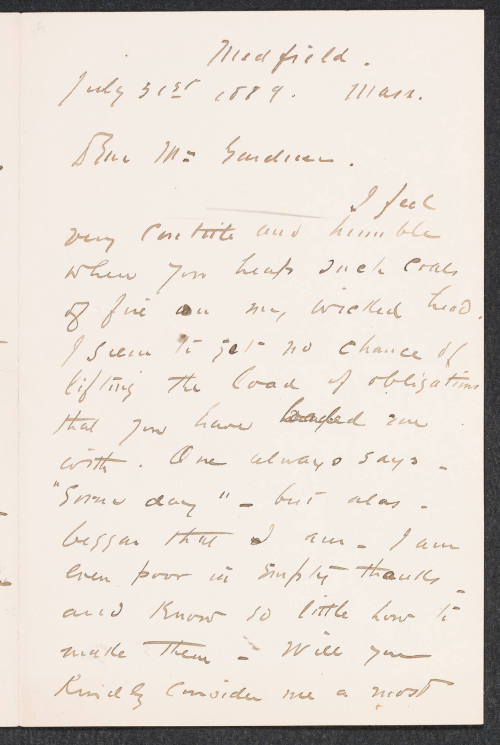 Medfield.
July 31st 1889. Mass.
Dear Mrs Gardner.
I feel
very contrite and humble
when you heap such coals
of fire on my wicked head.
I seem to get no chance of
lifting the load of obligations
that you have loaded me
with. One always says -
"Some day" - but alas -
beggar that I am - I am
even poor in simple thanks -
and know so little how to
make them - Will you
kindly consider me a most